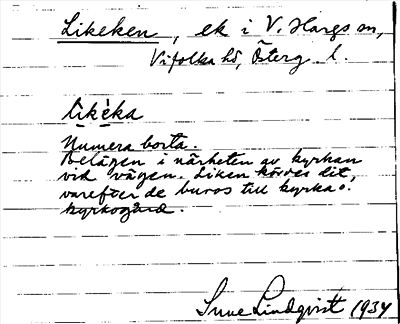 Likeken, ek i V. Hargs sn,
Vifolka hd, Österg. l.
likeka
Numera borta.
Belägen i närheten av kyrkan
vid vägen. Liken kördes dit,
varefter de buros till kyrka o.
kyrkogård.
Sune Lindqvist 1934